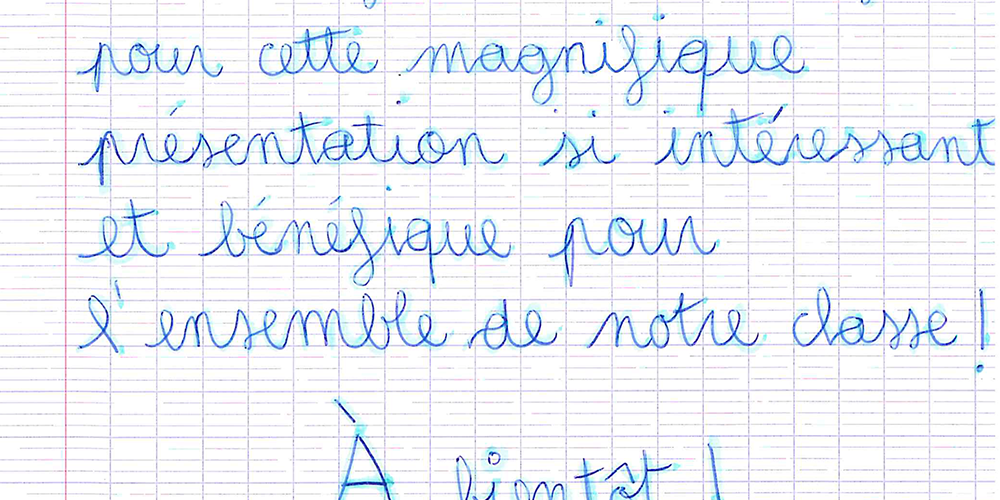 pour cette magnifique
présentation si intéressant
et bénéfique pour
l'ensemble de notre classe !
À bientôt !